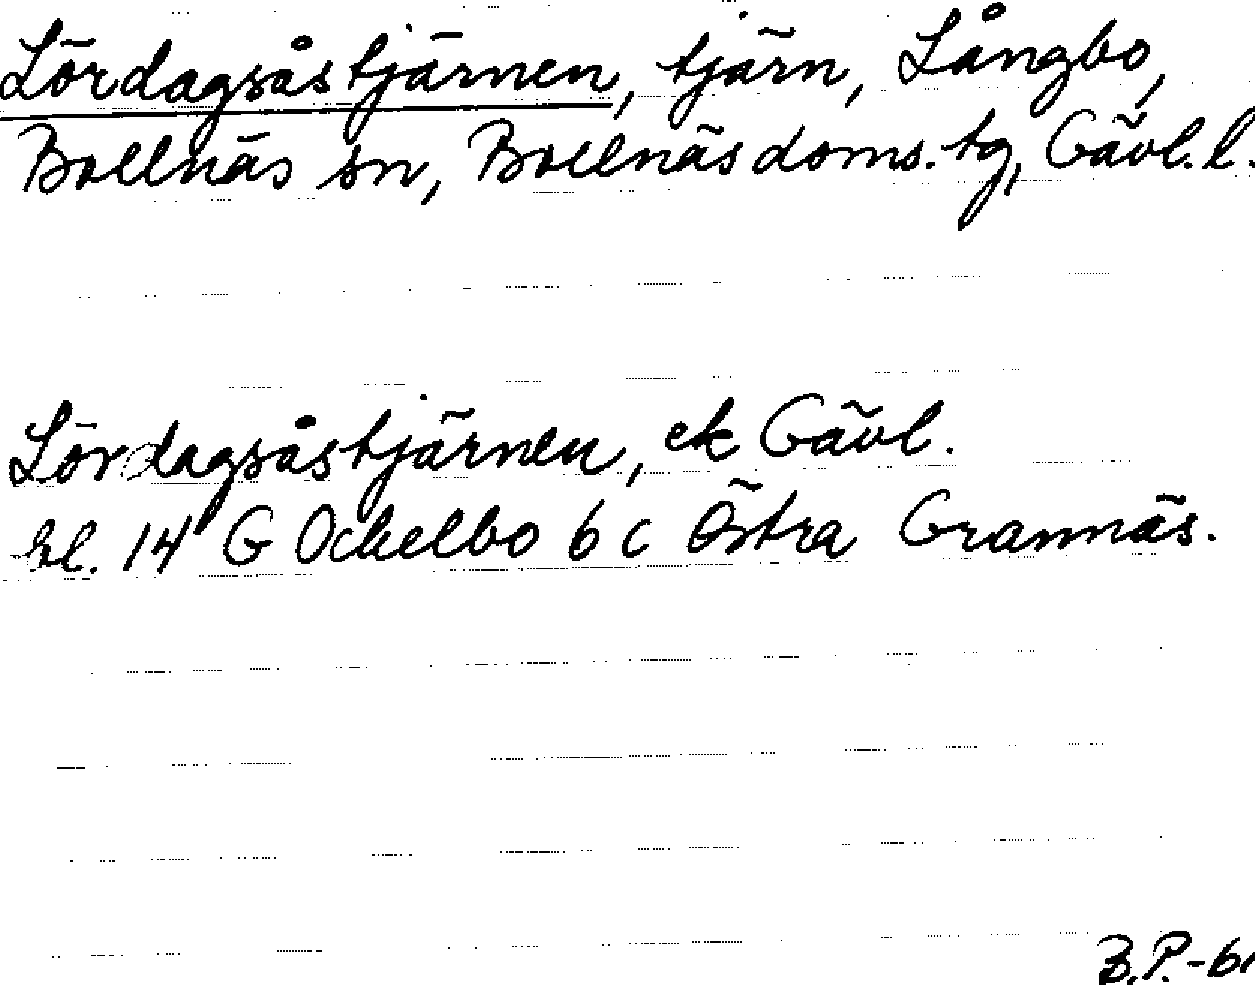 Lördagsåstjärnen, tjärn, Långbo,
Bollnäs sn, Bollnäs doms. tg, Gävl. l.
Lördagsåstjärnen, ek Gävl.
bl. 14 G Ockelbo 6 c Östra Grannäs.
B.P.-6